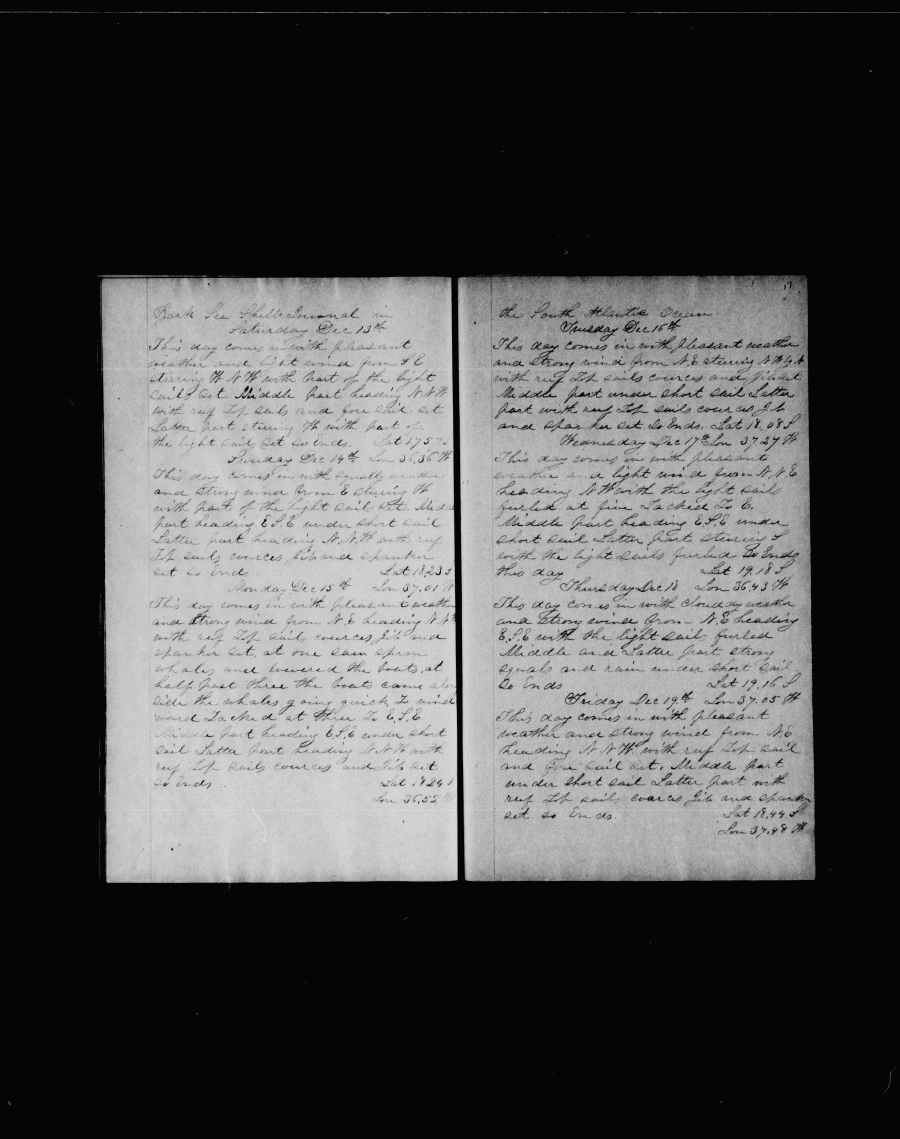 Bark Sea Shell Journal in
Saturday Dec 13th
This day comes in with pleasant
weather and light wind from N E
steering W N W with part of the light
sails set Middle part heading N N W
with reef Top sails and fore sail set
Latter part steering W with part of
the light sail set So Ends. Lat 17,57 S
Sunday Dec 14th Lon 36,36 W
This day comes in with squally weather
and strong wind from E steering W
with part of the light sails set. Middle
part heading E,S,E under short sail
Latter part heading N.N.W with reef
Top sails cources Jib and spanker
set so Ends. Lat 18,23 S
Monday Dec 15th Lon 37.01 W
This day comes in with pleasant weather
and strong wind from N.E heading N.N.W
with reef Top sails cources Jib and
spanker set, at one saw sprm
whales and lowered the boats, at
half past three the boats came along
side the whales going quick To wind
ward Tacked at three To E,S,E
Middle part heading E,S,E under short
sail Latter part heading N.N.W with
reef Top sails cources and Jib set
So Ends. Lat 18,24 S
Lon 36.52 W
17.
the South Atlantic Ocean
Tuesday Dec 16th
This day comes in with pleasant weather
and strong wind from N.E steering N W by N
with reef Top sails cources and Jib set
Middle part under short sail Latter
part with reef Top sails cources Jib
and spanker set So Ends. Lat 18,08 S
Wednesday Dec 17th Lon 37,27 W
This day comes in with pleasant
weather and light wind from N,N,E
heading N W with the light sails
furled at five Tacked To E.
Middle part heading E,S,E under
short sail Latter part steering S
with the light sails furled So Ends
this day Lat 19,18 S
Thursday Dec 18 Lon 36,43 W
This day comes in with clouddy weather
and strong wind from N.E heading
E,S,E with the light sails furled
Middle and Latter part strong
squals and rain under short sail
So Ends Lat 19,16 S
Friday Dec 19th Lon 37.05 W
This day comes in with pleasant
weather and strong wind from N.E
heading N N W. with reef Top sail
and fore sail set. Middle part
under short sail Latter part with
reef Top sails cources Jib and spanker
set so Ends. Lat 18,44 S
Lon 37,48 W